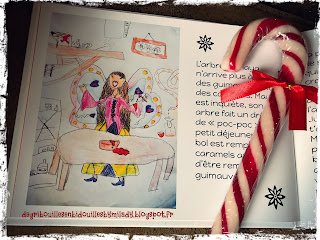 L'arbre
n'arrive plus à
des guim
des ca
est inquiète, son
arbre fait un dr
de « poc-poc
petit déjeune
bol est remp
caramels a
d'être rem
guimauv
degribouillesenbidouillesbymilady.blogspot.fr